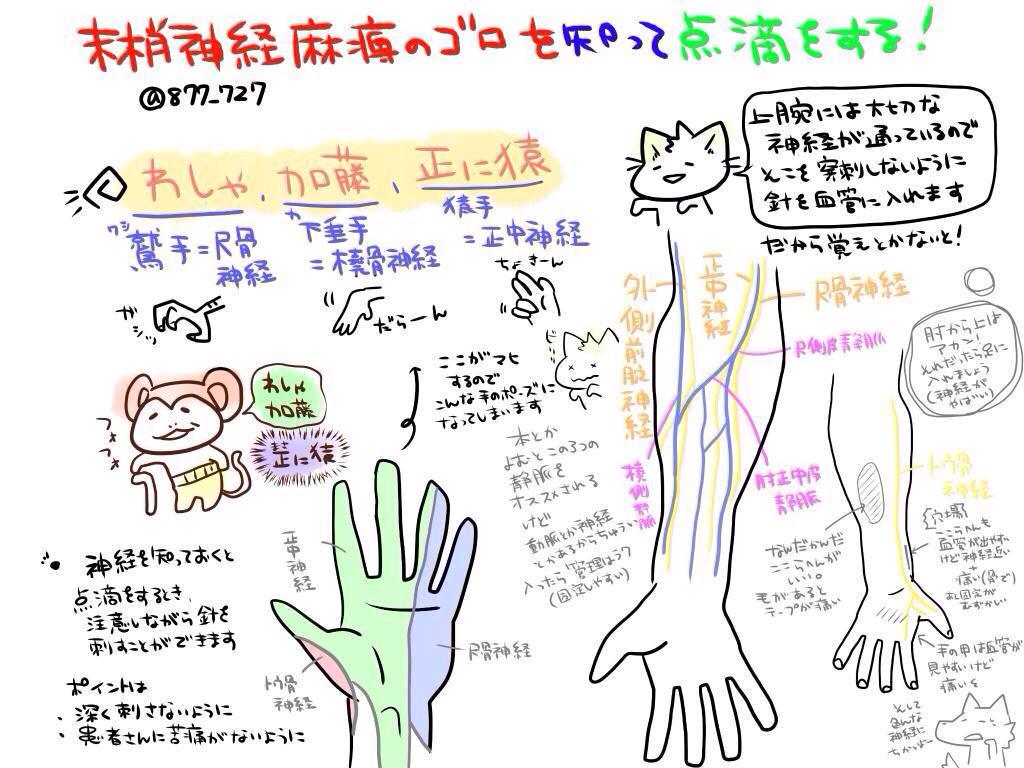 末梢神経麻痺のゴロを知って点滴をする!
@877_727
わしゃ、加藤、正に猿
ワシ
鷲手=尺骨
神経
カ
下垂手
=橈骨神経
猿手
=正中神経
ガシッ
だらーん
ちょきーん
上腕には大切な
神経が通っているので
そこを穿刺しないように
針を血管に入れます
だから覚えとかないと!
わしゃ
加藤
正に猿
フォフォフォ
ここがマヒ
するので
こんな手のポーズに
なってしまいます
外側前腕神経
正中神経
尺骨神経
尺側皮静脈
橈側静脈
肘正中皮
静脈
肘から上は
アカン!
それだったら足に
入れましょう
(神経が
やばい)
本とか
よむとこの3つの
静脈を
オススメされる
けど
動脈とか神経
とかあるからちゅうい
入ったら管理はラク
(固定しやすい)
なんだかんだ
ここらへんが
いい。
毛があると
テープが痛い
トウ骨
神経
{穴場}
ここらへんも
血管が出やすい
けど神経近い
+
痛い(骨で)
あと固定が
むずかしい
手の甲は血管が
見やすいけど
痛いよ
そして
色んな
神経に
ちかいよー
正中
神経
尺骨神経
トウ骨
神経
神経を知っておくと
点滴をするとき、
注意しながら針を
刺すことができます
ポイントは
・深く刺さないように
・患者さんに苦痛がないように